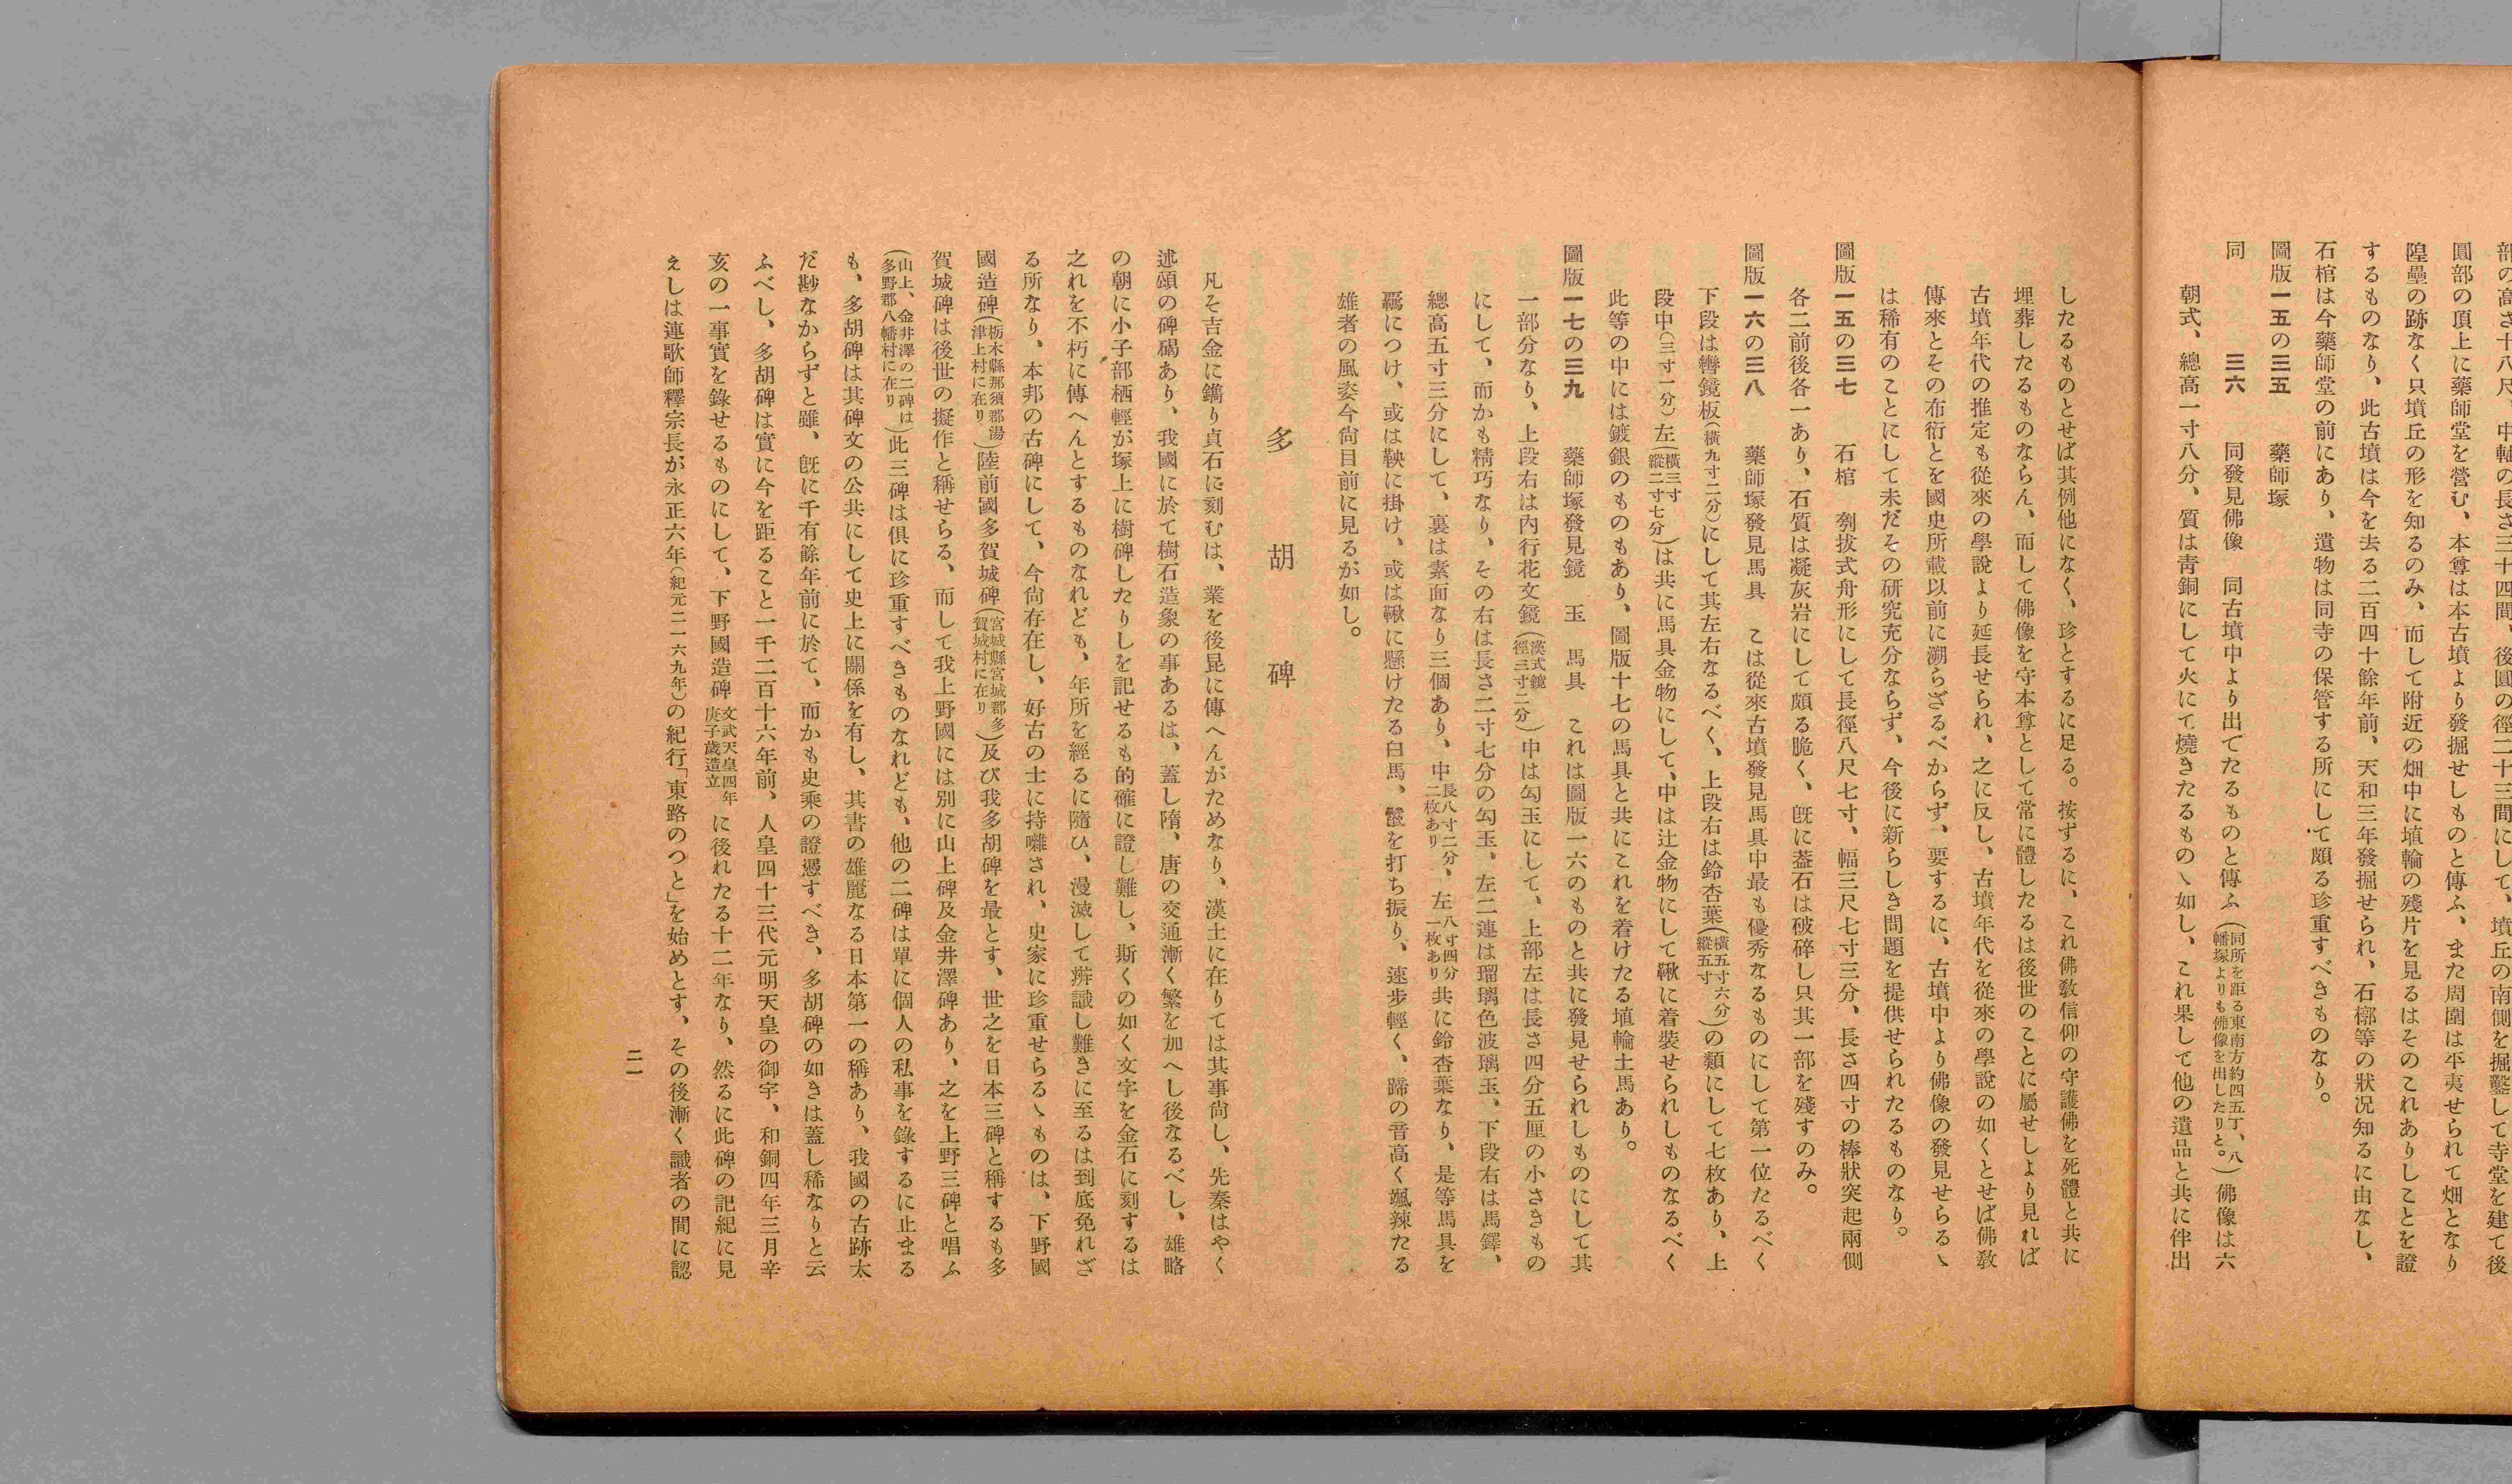 部の高さ十八尺、中軸の長さ三十四間、後圓の徑二十三間にして、墳丘の南側を掘鑿して寺堂を建て後
圓部の頂上に藥師堂を營む、本尊は本古墳より發掘せしものと傳ふ、また周圍は平夷せられて畑となり
隍壘の跡なく只墳丘の形を知るのみ、而して附近の畑中に埴輪の殘片を見るはそのこれありしことを證
するものなり、此古墳は今を去る二百四十餘年前、天和三年發掘せられ、石槨等の狀況知るに由なし、
石棺は今藥師堂の前にあり、遺物は同寺の保管する所にして頗る珍重すべきものなり。
圖版一五の三五 藥師塚
同 三六 同發見佛像 同古墳中より出でたるものと傳ふ(同所を距る東南方約四五丁、八幡塚よりも佛像を出したりと。)佛像は六
朝式、總高一寸八分、質は靑銅にして火にて燒きたるものゝ如し、これ果して他の遺品と共に伴出
したるものとせば其例他になく、珍とするに足る。按ずるに、これ佛敎信仰の守護佛を死體と共に
埋葬したるものならん、而して佛像を守本尊として常に體したるは後世のことに屬せしより見れば
古墳年代の推定も從來の學說より延長せられ、之に反し、古墳年代を從來の學說の如くとせば佛敎
傳來とその布衍とを國史所載以前に溯らざるべからず、要するに、古墳中より佛像の發見せらるゝ
は稀有のことにして未だその硏究充分ならず、今後に新らしき問題を提供せられたるものなり。
圖版一五の三七 石棺 刳拔式舟形にして長徑八尺七寸、幅三尺七寸三分、長さ四寸の棒狀突起兩側
各二前後各一あり、石質は凝灰岩にして頗る脆く、旣に蓋石は破碎し只其一部を殘すのみ。
圖版一六の三八 藥師塚發見馬具 こは從來古墳發見馬具中最も優秀なるものにして第一位たるべく
下段は轡鏡板(橫九寸二分)にして其左右なるべく、上段右は鈴杏葉(橫五寸六分縱五寸)の類にして七枚あり、上
段中(三寸一分)左(橫三寸縱二寸七分)は共に馬具金物にして、中は辻金物にして鞦に着裝せられしものなるべく
此等の中には鍍銀のものもあり、圖版十七の馬具と共にこれを着けたる埴輪土馬あり。
圖版一七の三九 藥師塚發見鏡 玉 馬具 これは圖版一六のものと共に發見せられしものにして其
一部分なり、上段右は內行花文鏡(漢式鏡徑三寸二分)中は勾玉にして、上部左は長さ四分五厘の小さきもの
にして、而かも精巧なり、その右は長さ二寸七分の勾玉、左二連は瑠璃色玻璃玉、下段右は馬鐸、
總高五寸三分にして、裏は素面なり三個あり、中長八寸二分、二枚あり左八寸四分一枚あり共に鈴杏葉なり、是等馬具を
羈につけ、或は鞅に掛け、或は鞦に懸けたる白馬、鬣を打ち振り、速步輕く、蹄の音高く颯辣たる
雄者の風姿今尙目前に見るが如し。
多胡碑
凡そ吉金に鐫り貞石に刻むは、業を後昆に傳へんがためなり、漢土に在りては其事尙し、先秦はやく
述頌の碑碣あり、我國に於て樹石造象の事あるは、蓋し隋、唐の交通漸く繁を加へし後なるべし、雄略
の朝に小子部栖輕が塚上に樹碑したりしを記せるも的確に證し難し、斯くの如く文字を金石に刻するは
之れを不朽に傳へんとするものなれども、年所を經るに隨ひ、漫滅して辨識し難きに至るは到底免れざ
る所なり、本邦の古碑にして、今尙存在し、好古の士に持囃され、史家に珍重せらるゝものは、下野國
國造碑(栃木縣那須郡湯津上村に在り)陸前國多賀城碑(宮城縣宮城郡多賀城村に在り)及び我多胡碑を最とす、世之を日本三碑と稱するも多
賀城碑は後世の擬作と稱せらる、而して我上野國には別に山上碑及金井澤碑あり、之を上野三碑と唱ふ
(山上、金井澤の二碑は多野郡八幡村に在り)此三碑は俱に珍重すべきものなれども、他の二碑は單に個人の私事を錄するに止まる
も、多胡碑は其碑文の公共にして史上に關係を有し、其書の雄麗なる日本第一の稱あり、我國の古跡太
だ尠なからずと雖、旣に千有餘年前に於て、而かも史乘の證憑すべき、多胡碑の如きは蓋し稀なりと云
ふべし、多胡碑は實に今を距ること一千二百十六年前、人皇四十三代元明天皇の御宇、和銅四年三月辛
亥の一事實を錄せるものにして、下野國造碑文武天皇四年庚子歲造立に後れたる十二年なり、然るに此碑の記紀に見
えしは連歌師釋宗長が永正六年(紀元二一六九年)の紀行「東路のつと」を始めとす、その後漸く識者の間に認
二一